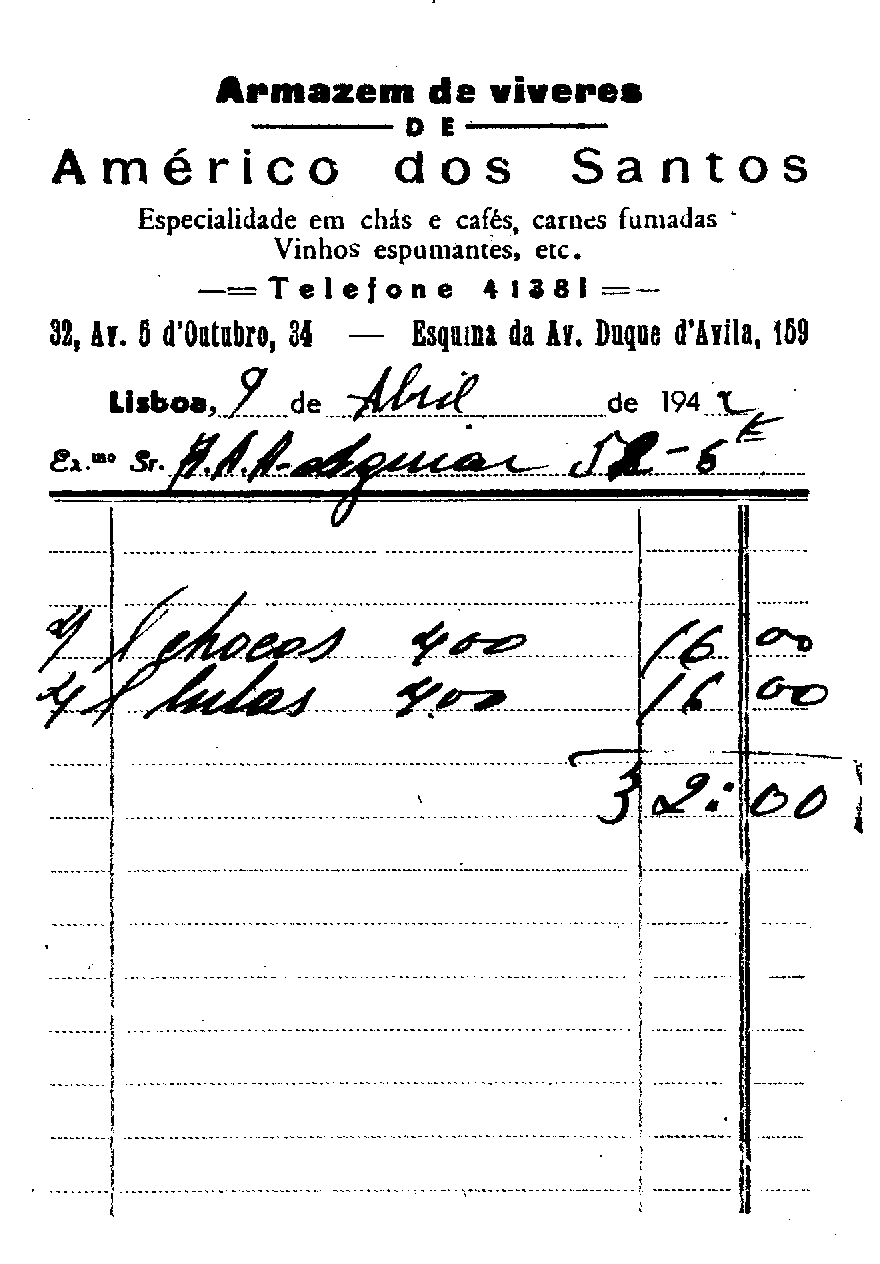 Armazem de viveres
DE
Américo dos Santos
Especialidade em chás e cafés, carnes fumadas
Vinhos espumantes, etc.
Telefone 41381
32, Av. 5 d'Outubro, 34 — Esquina da Av. Duque d'Avila, 159
Lisboa, 9 de Abril de 1942
Ex.mo Sr. A. A. A. d'Aguiar 52-5º E
4 l chocos 400 16 00
4 l lulas 4.00 16 00
32:00